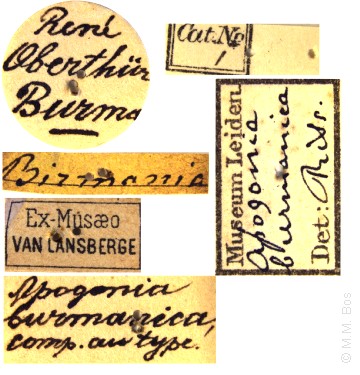 René
Oberthür
Burma
Cat. No
Birmania
Ex-Musæo
VAN LANSBERGE
Apogonia
burmanica,
comp. au type.
Museum Leiden
Apogonia
burmanica
Det: Rits.
© M.M. Bos